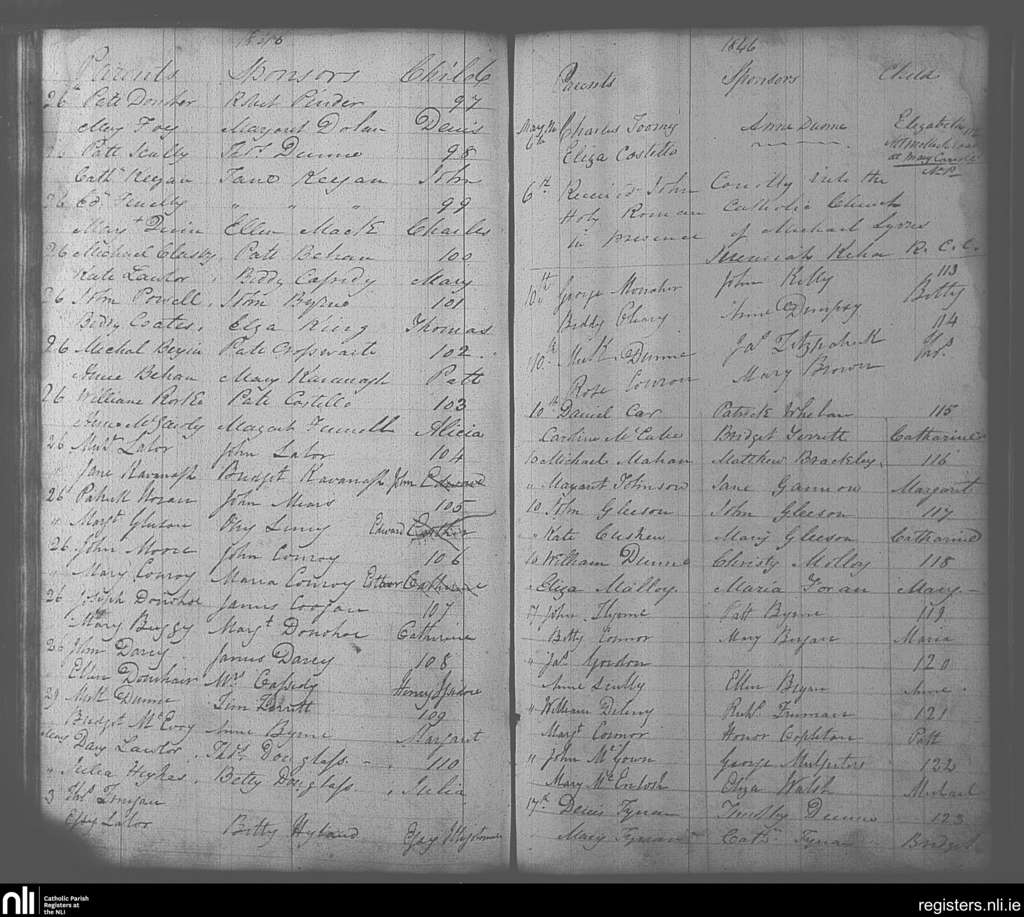 1846
Parents Sponsors Child
26 Patt Donohor Robert Pinder 97
Mary Foy Margaret Dolan Denis
Patt Scully Thos. Dunne 98
Cathn. Keegan Jane Keegan John
26 Ed. Scully " " " 99
Ellen Mack Charles
26 Michael Patt Behan 100
Kate Lawlor Biddy Cassidy Mary
26 John Powell John Byrne 101
Biddy Coates Elza King Thomas
26 Michal Patt 102
Anne Behan Mary Kavanagh Patt
26 William Rorke Patt Costello 103
Anne Margaret Alicia
26 Michl. Lalor John Lalor 104
" Jane Kavanagh Bridget Kavanagh John Edward
26 Patrick Horan John 105
" Margt. Edward Esther
26 John Moore John Conroy 106
" Mary Conroy Maria Conroy Esther Catherine
26 Joseph Donohoe James Coogan 107
Mary Buggy Margt. Donohoe Catherine
26 John Darcy James Darcy 108
Ellen Mrs. Cassidy Henry Isidore
29 Michl. Dunne Tim 109
Bridget McEvoy Anne Byrne Margaret
Lawlor Thos. Douglass 110
" Julia Hughes Betty Douglass Julia
3 Thos.
Essy Lalor Betty Hyland Essy
1846
Parents Sponsors Child
May the 6th Charles Toomy Anne Dunne Elizabeth
Eliza Costello
6th Received John Conolly into the
Holy Roman Catholic Church
in presence of Michael
Jeremiah R. C. C.
113
10th George John Kelly Betty
Biddy Cleary Anne Dempsy
114
10th Michl. Dunne Jas. Fitzpatrick Jas.
Rose Mary Brown
10th Daniel Car Patrick Whelan 115
Caroline McCabe Bridget Catharine
10 Michael Mahan Matthew Brackley 116
" Margaret Johnson Jane Gannon Margaret
10 John Gleeson John Gleeson 117
" Kate Cushen Mary Gleeson Catharine
10 William Dunne Christy Molloy 118
" Eliza Malloy Maria Foran Mary
17 John Patt Byrne 119
" Betty Connor Mary Maria
" Jas. Gordon 120
Anne Scully Ellen Bryan Anne
" William Delany Truman 121
Margt. Connor Honor Copleton Patt
" John McGown George 122
Mary McEntosh Eliza Walsh Michael
17th Denis Tynan Timothy Dunne 123
Mary Cath. Tynan Bridget
nli
Catholic Parish
Registers at
the NLI
registers.nli.ie